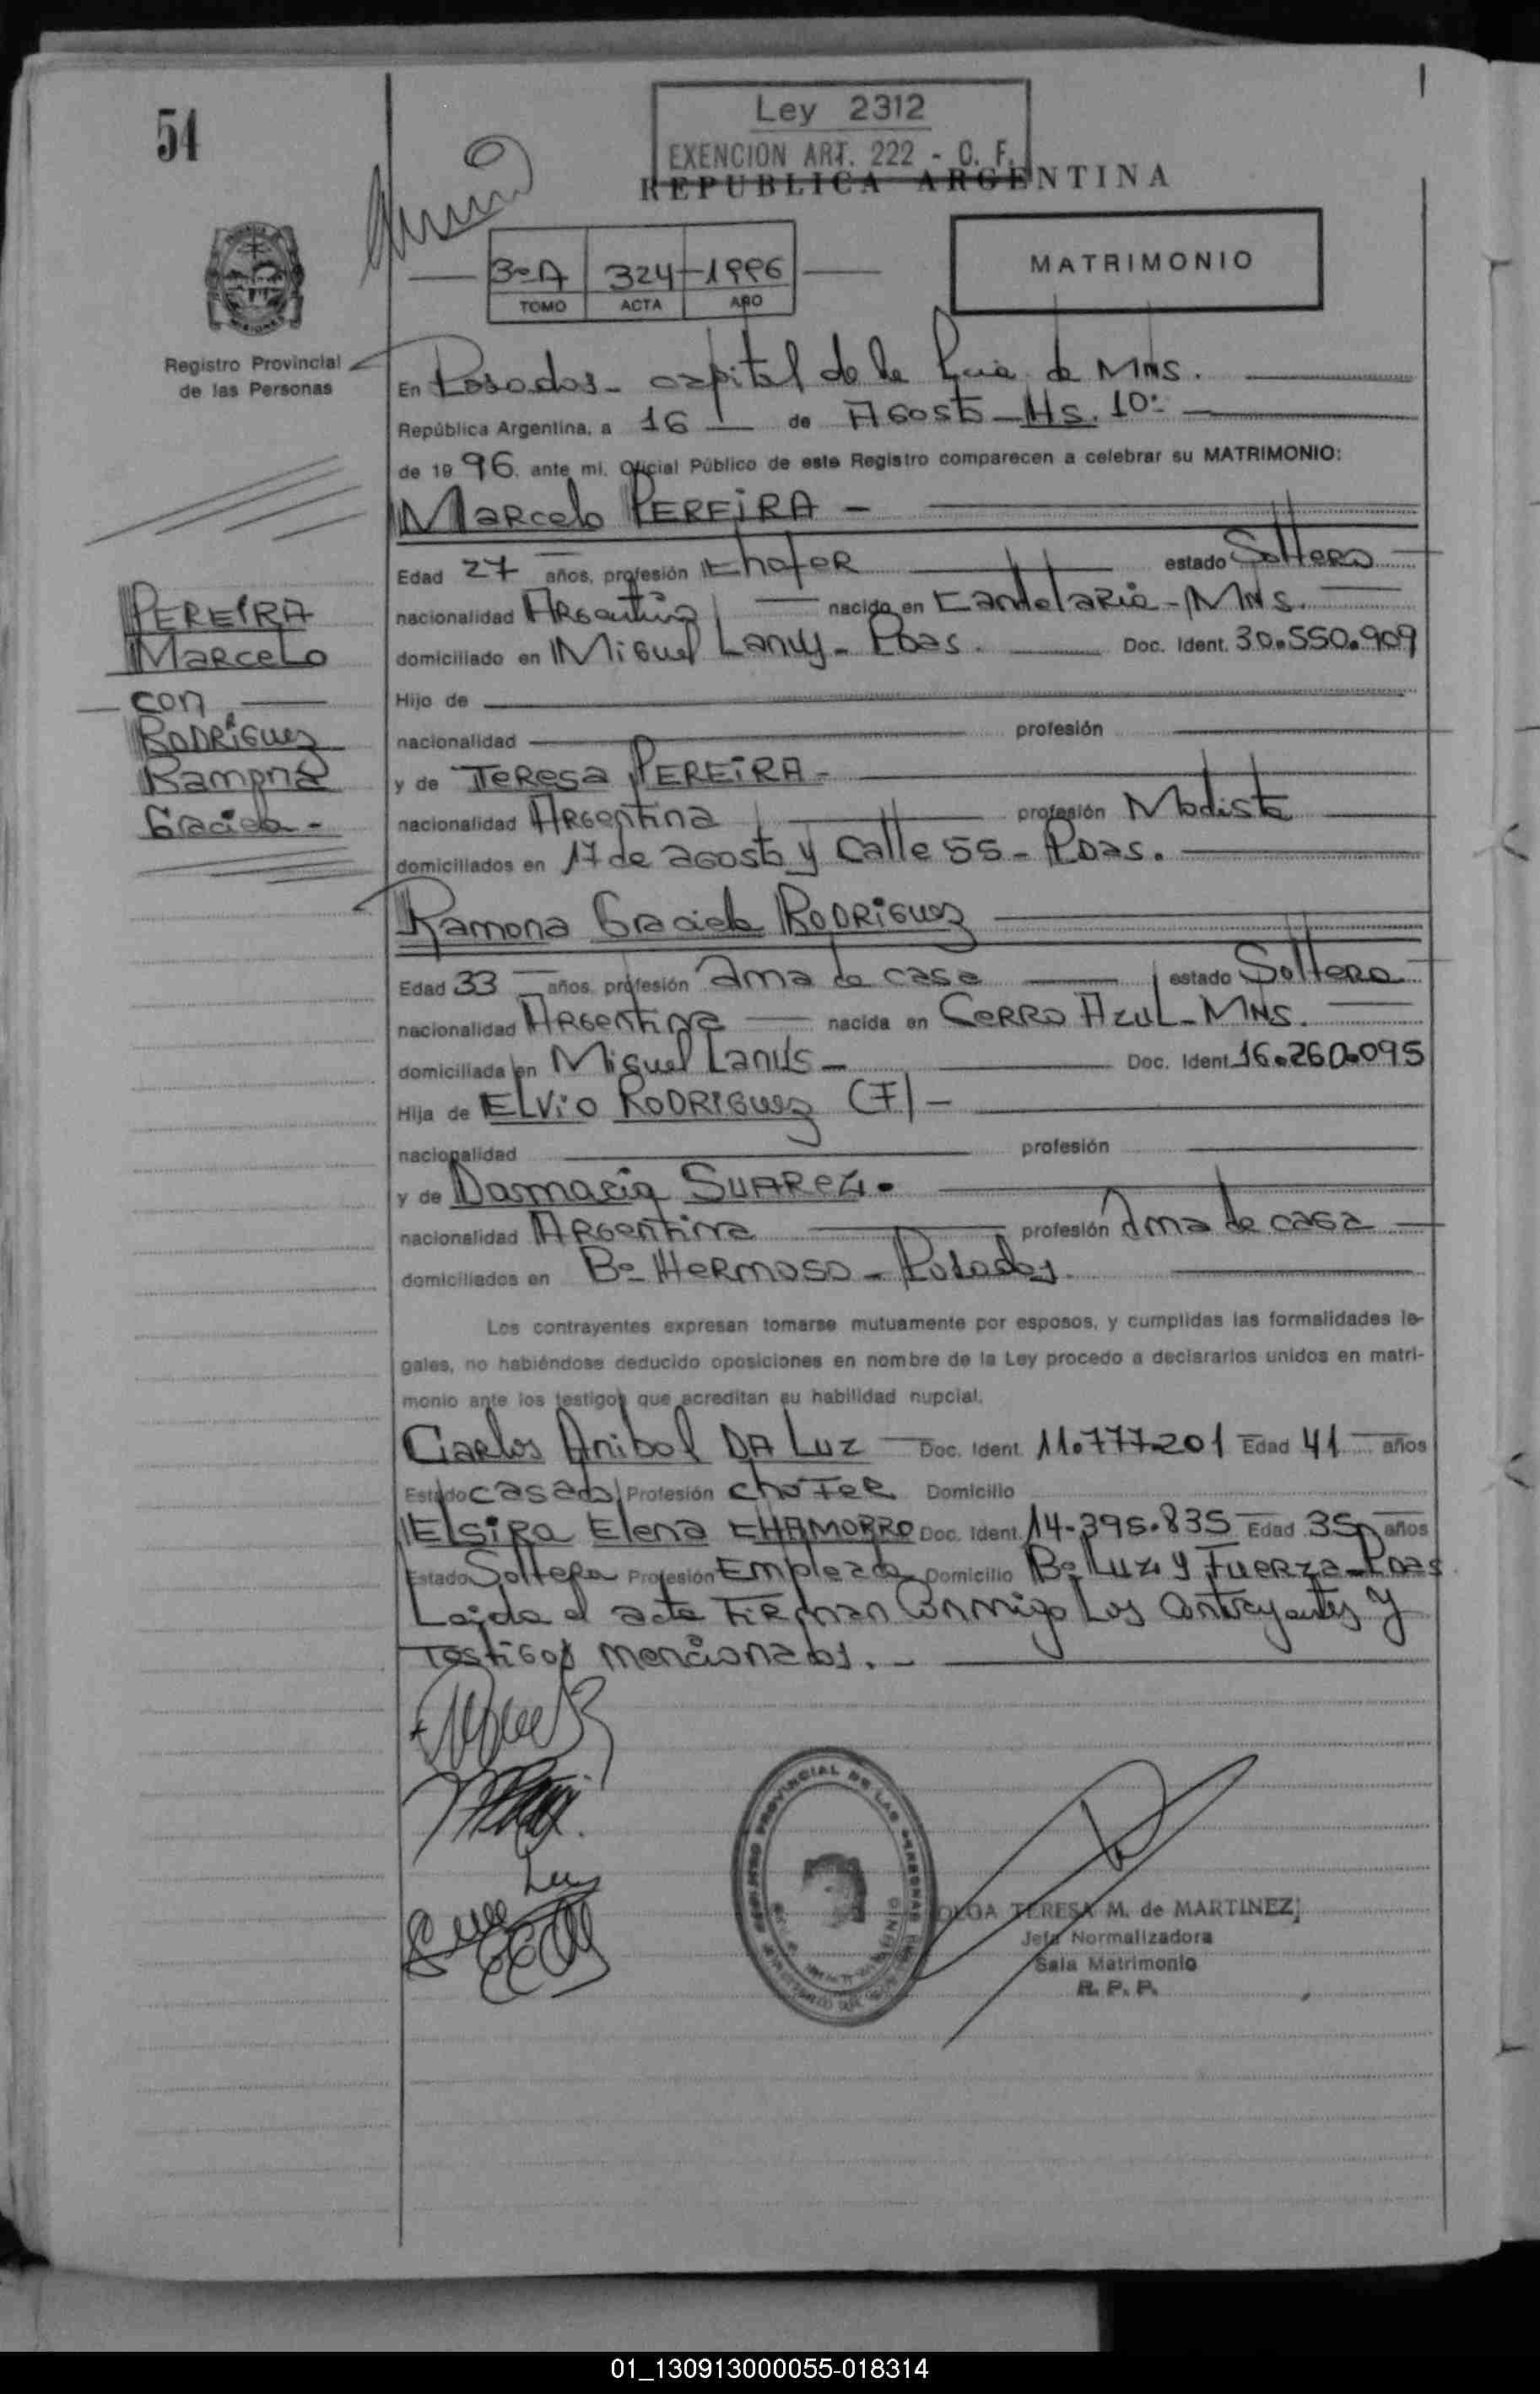 54
Ley 2312
EXENCION ART. 222 - C. F.
REPUBLICA ARGENTINA
3º A 324 - 1996
TOMO ACTA AÑO
MATRIMONIO
Registro Provincial
de las Personas
En Posadas - capital de la Pcia de Mnes.
República Argentina, a 16 de Agosto - Hs. 10:
de 1996. ante mi, Oficial Público de este Registro comparecen a celebrar su MATRIMONIO:
Marcelo PEREIRA -
Edad 27 años, profesión Chofer estado Soltero
nacionalidad Argentina nacido en Candelaria - Mnes.
domiciliado en Miguel Lanus - Pdas. Doc. Ident. 30.550.909
Hijo de
nacionalidad profesión
y de Teresa PEREIRA -
nacionalidad Argentina profesión Modista
domiciliados en 17 de agosto y Calle 55 - Pdas.
PEREIRA
Marcelo
con
RODRIGUEZ
Ramona
Graciela -
Ramona Graciela RODRIGUEZ
Edad 33 años, profesión Ama de casa estado Soltera
nacionalidad Argentina nacida en Cerro Azul - Mnes.
domiciliada en Miguel Lanús - Doc. Ident. 16.260.095
Hija de ELVIO RODRIGUEZ (F) -
nacionalidad profesión
y de Damacia SUAREZ.
nacionalidad Argentina profesión Ama de casa
domiciliados en Bº Hermoso - Posadas.
Los contrayentes expresan tomarse mutuamente por esposos, y cumplidas las formalidades le-
gales, no habiéndose deducido oposiciones en nombre de la Ley procedo a declararlos unidos en matri-
monio ante los testigos que acreditan su habilidad nupcial.
Carlos Anibal DA LUZ Doc. Ident. 11.777.201 Edad 41 años
Estado casado Profesión chofer Domicilio
Elsira Elena CHAMORRO Doc. Ident. 14.395.835 Edad 35 años
Estado Soltera Profesión Empleada Domicilio Bº Luz y Fuerza - Pdas
Leida el acta firman conmigo los contrayentes y
testigos mencionados. -
REGISTRO PROVINCIAL DE LAS PERSONAS
OLGA TERESA M. de MARTINEZ
Jefa Normalizadora
Sala Matrimonio
R. P. P.
01_130913000055-018314